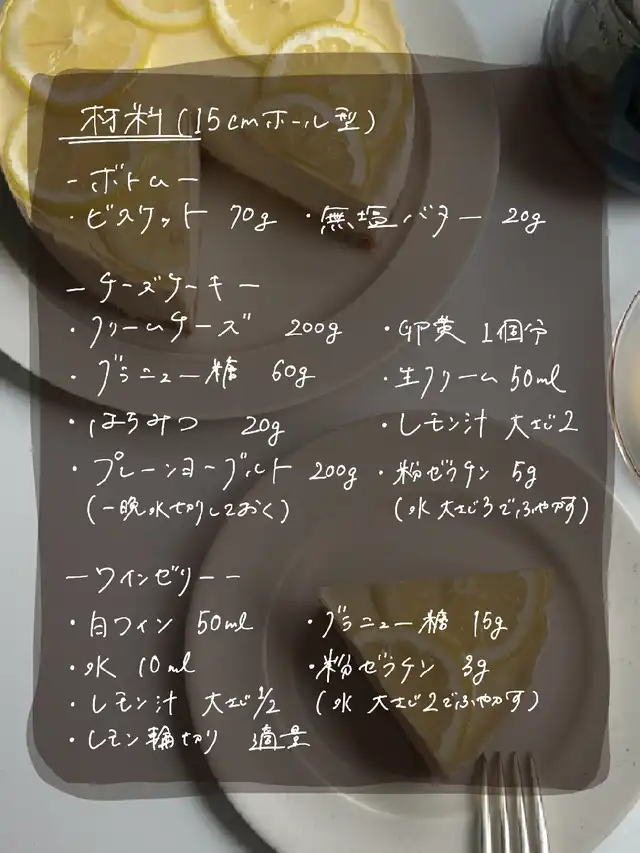 材料(15cmホール型)
-ボトム-
・ビスケット 70g ・無塩バター 20g
-チーズケーキ-
・クリームチーズ 200g ・卵黄 1個分
・グラニュー糖 60g ・生クリーム 50ml
・はちみつ 20g ・レモン汁 大さじ2
・プレーンヨーグルト 200g ・粉ゼラチン 5g
(一晩水切りしておく) (水 大さじ3でふやかす)
-ワインゼリー-
・白ワイン 50ml ・グラニュー糖 15g
・水 10ml ・粉ゼラチン 3g
・レモン汁 大さじ1/2 (水 大さじ2でふやかす)
・レモン輪切り 適量